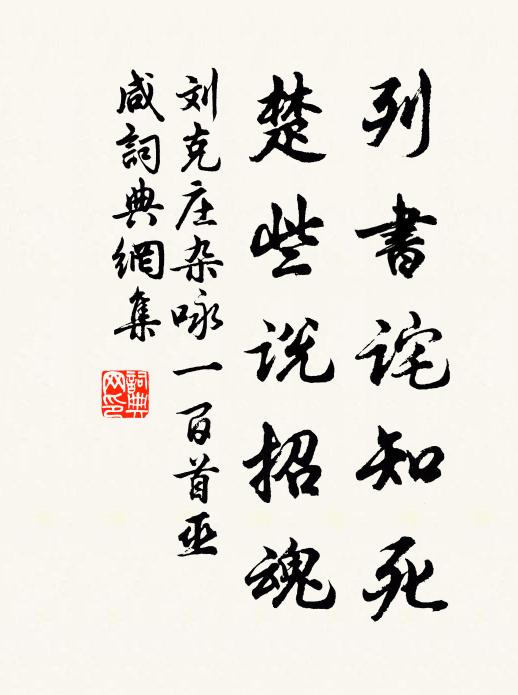 列書詫知死
楚些説招魂
刘克庄杂咏一百首巫
咸詞典網集
詞典网印